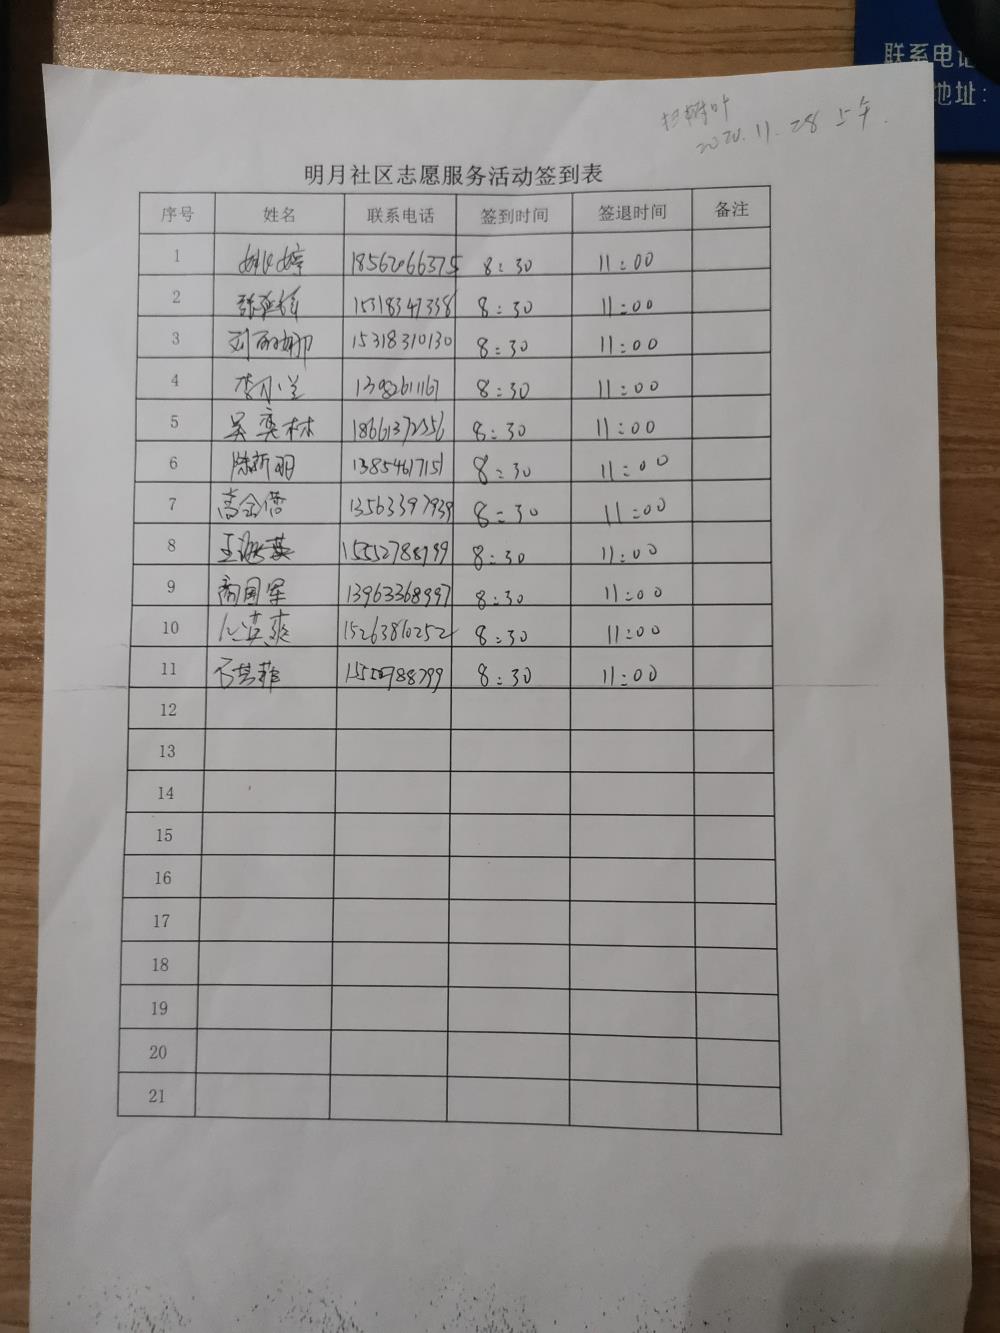 联系电话
地址:
扫树叶
2020.11.28上午.
明月社区志愿服务活动签到表
序号 姓名 联系电话 签到时间 签退时间 备注
1 18562066375 8:30 11:00
2 15318347338 8:30 11:00
3 刘丽娜 15318310130 8:30 11:00
4 李小兰 1398261167 8:30 11:00
5 吴奕林 18661372356 8:30 11:00
6 陈新羽 1385461715 8:30 11:00
7 高金 13563397939 8:30 11:00
8 王 15552788799 8:30 11:00
9 商国军 13963368997 8:30 11:00
10 15263810252 8:30 11:00
11 8:30 11:00
12
13
14
15
16
17
18
19
20
21